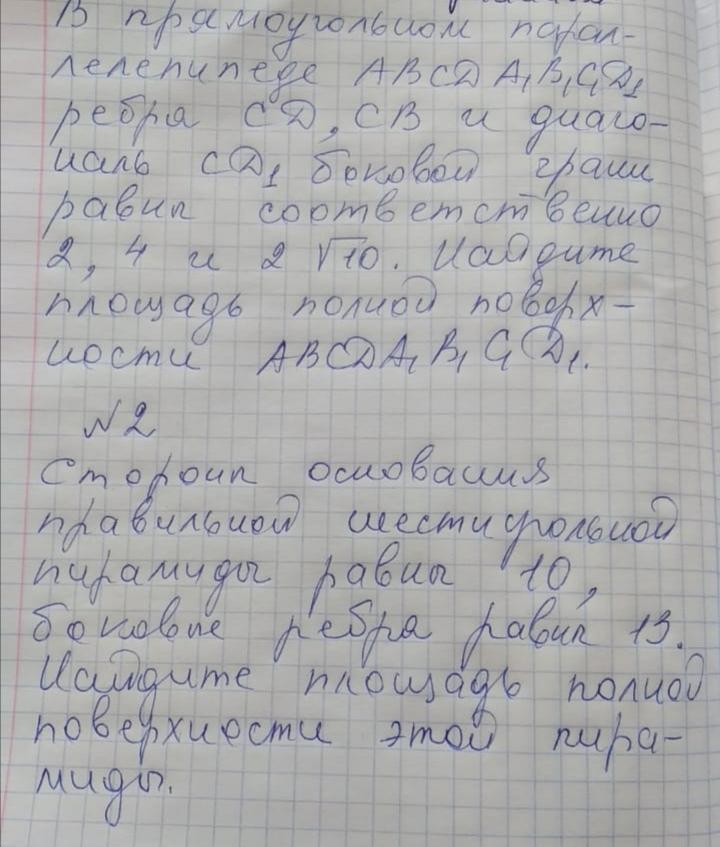 В прямоугольном парал-
лелепипеде ABCDA₁B₁C₁D₁
ребра CD, CB и диаго-
наль CD₁ боковой грани
равны соответственно
2, 4 и 2√10. Найдите
площадь полной поверх-
ности ABCDA₁B₁C₁D₁.
№2
Стороны основания
правильной шестиугольной
пирамиды равны 10,
боковые ребра равны 13.
Найдите площадь полной
поверхности этой пира-
миды.